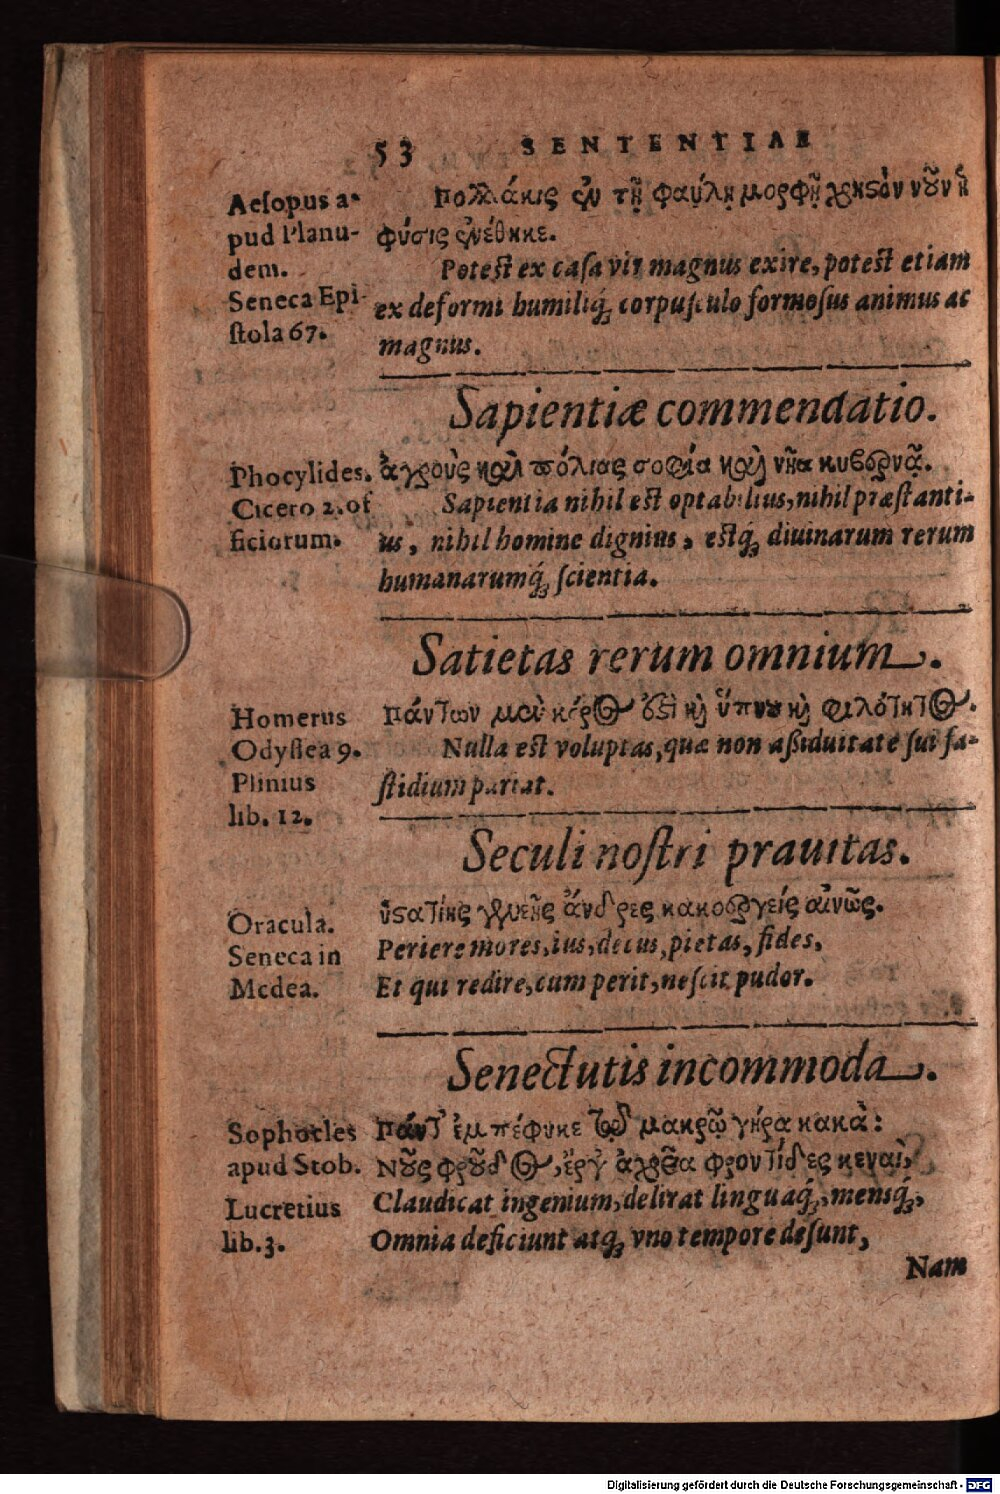 53 SENTENTIAE
Aesopus a-
pud Planu-
dem.
Seneca Epi-
stola 67.
Πολλάκις ἐν τῇ φαύλῃ μορφῇ χρηστὸν νοῦν ἡ
φύσις ἐνέθηκε.
Potest ex casa vir magnus exire, potest etiam
ex deformi humiliq́; corpusculo formosus animus ac
magnus.
Sapientiæ commendatio.
Phocylides.
Cicero 2. of
ficiorum.
ἀγροὺς καὶ πόλιας σοφία καὶ νῆα κυβερνᾷ.
Sapientia nihil est optabilius, nihil præstanti-
us, nihil homine dignius, estq́; diuinarum rerum
humanarumq́; scientia.
Satietas rerum omnium.
Homerus
Odyssea 9.
Plinius
lib. 12.
Πάντων μὲν κόρος ἐστὶ καὶ ὕπνου καὶ φιλότητος.
Nulla est voluptas, quæ non aßiduitate sui fa-
stidium pariat.
Seculi nostri prauitas.
Oracula.
Seneca in
Medea.
ὑστατίης γενεῆς ἄνδρες κακοεργείς αἰνῶς.
Periere mores, ius, decus, pietas, fides,
Et qui redire, cum perit, nescit pudor.
Senectutis incommoda.
Sophocles
apud Stob.
Lucretius
lib. 3.
Πάντ' ἐμπέφυκε τῷ μακρῷ γήρᾳ κακά:
Νοῦς φροῦδος, ἔργ' ἀχρεῖα φροντίδες κεναὶ,
Claudicat ingenium, delirat linguaq́;, mensq́;,
Omnia deficiunt atq́; vno tempore desunt,
Nam
Digitalisierung gefördert durch die Deutsche Forschungsgemeinschaft - DFG